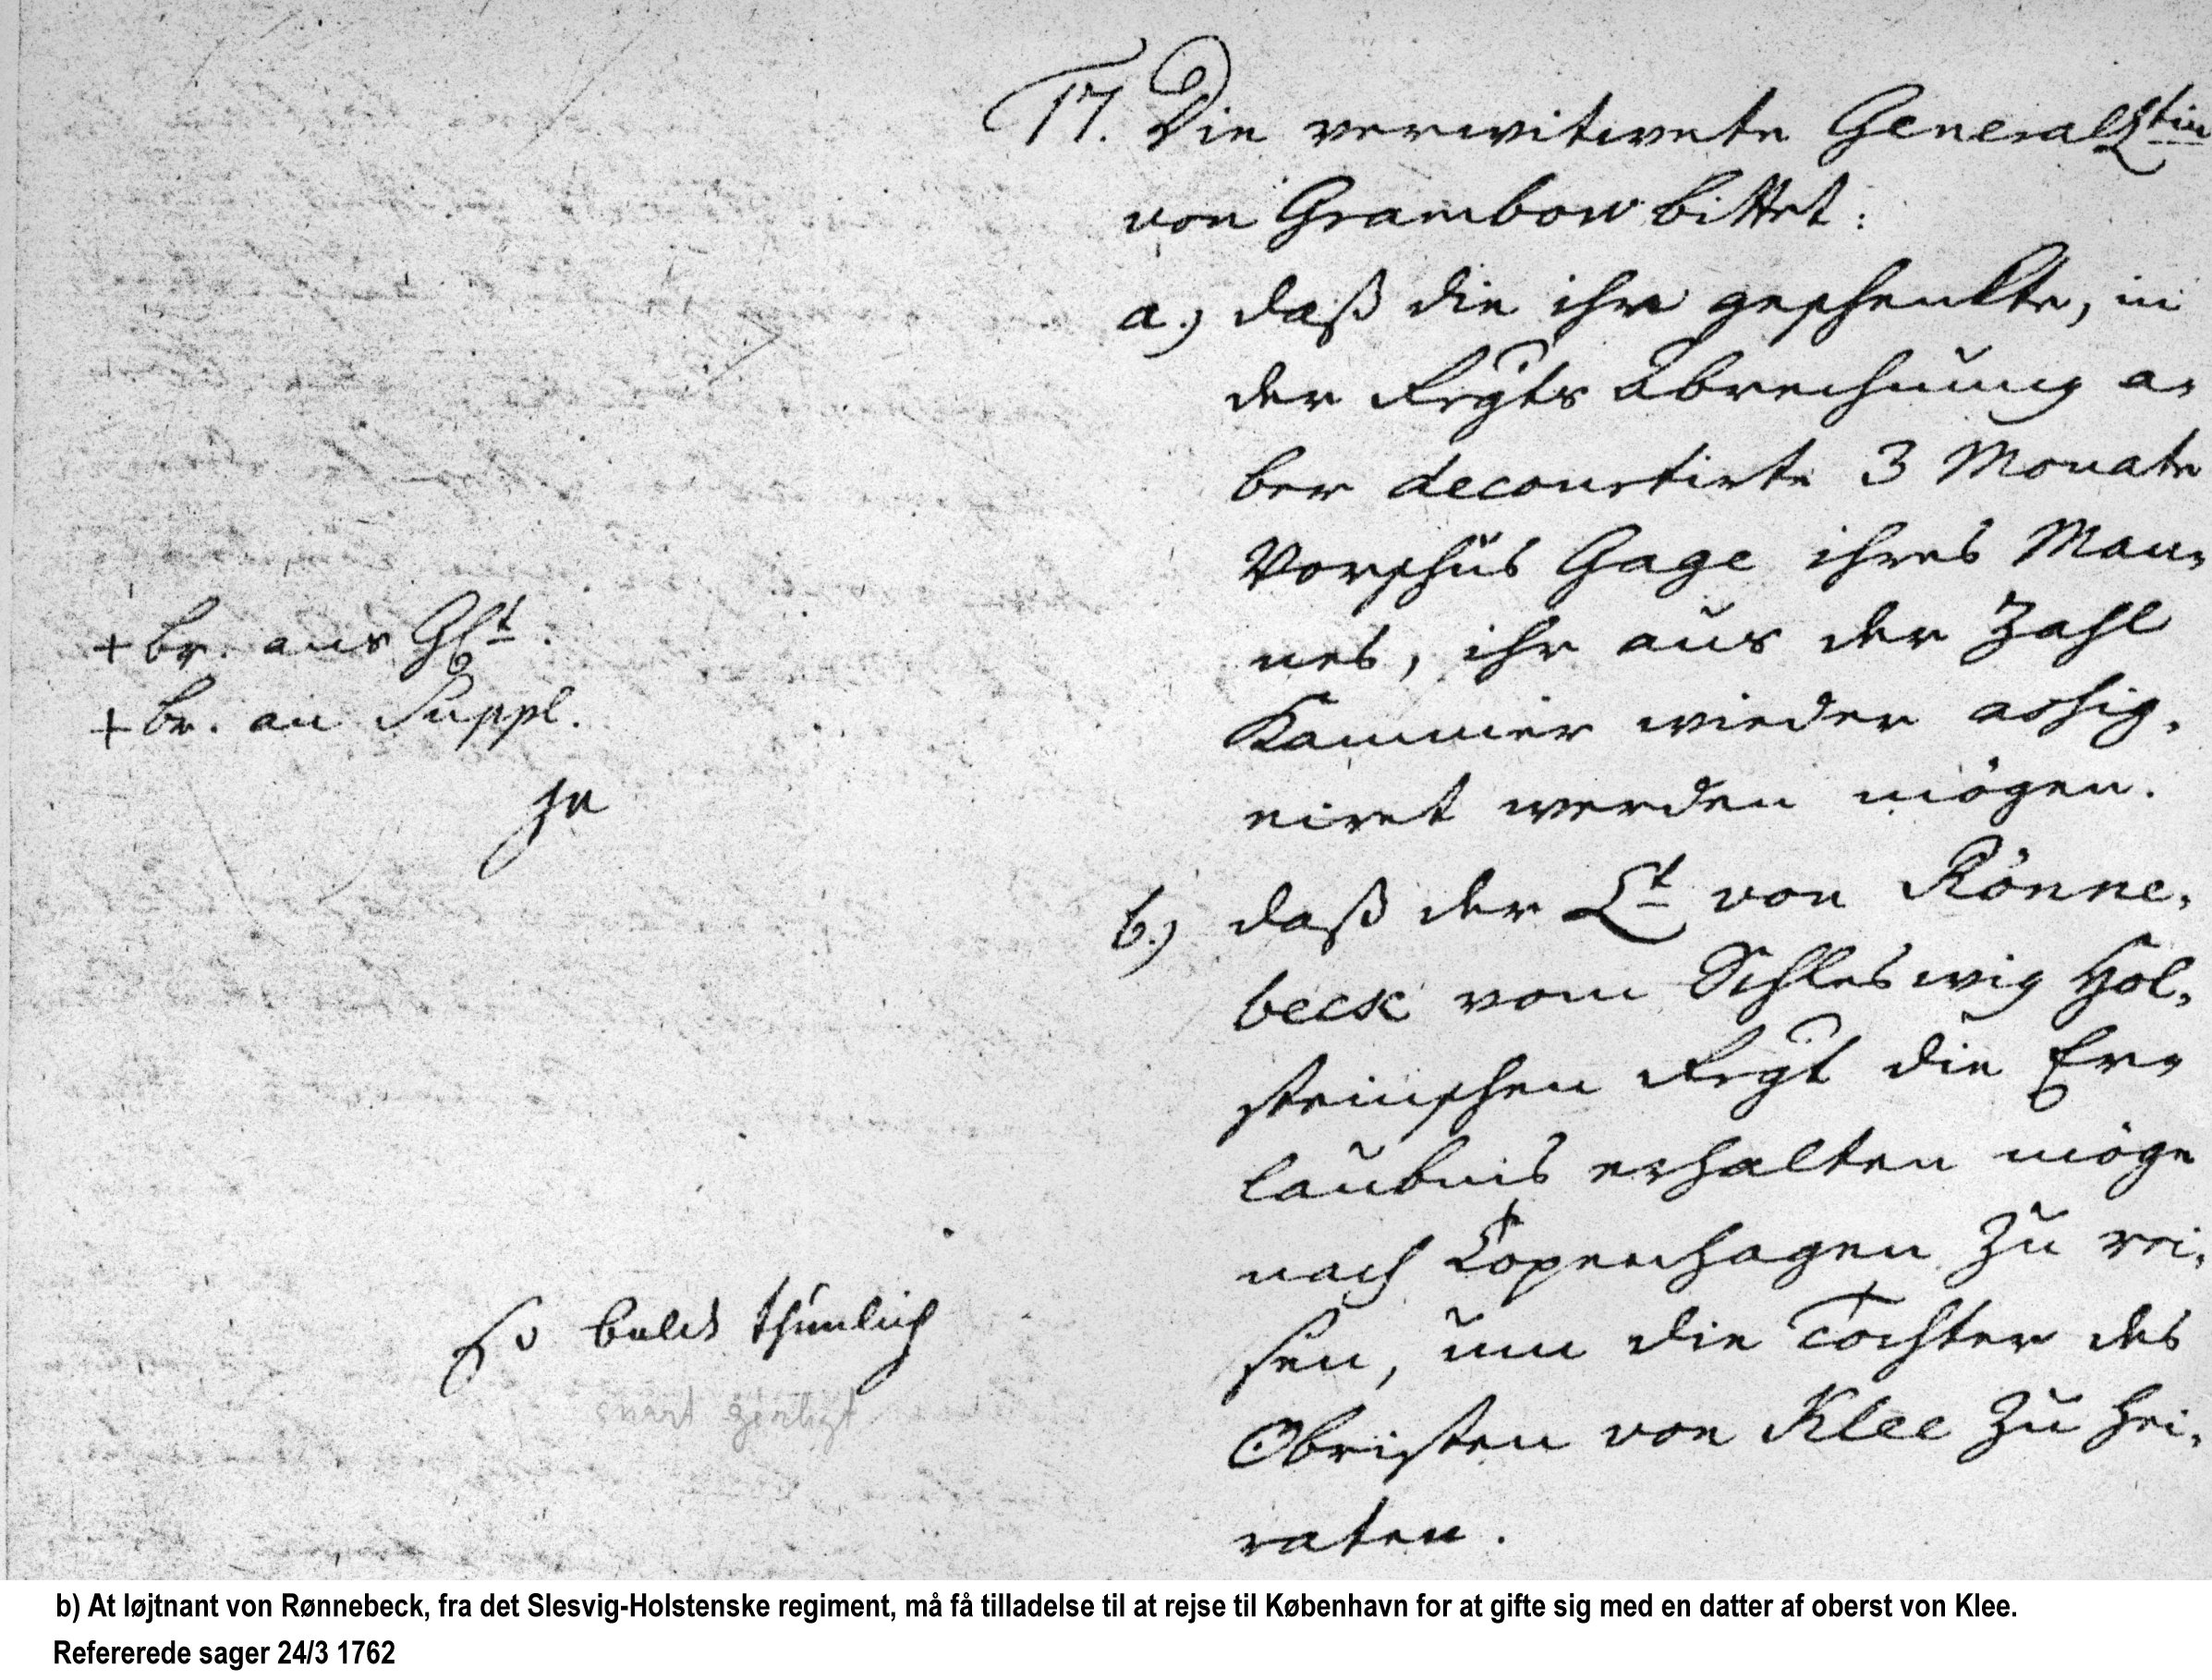 17. Die verwitwete General Ltin
von Grambow bittet:
a.) daß die ihr geschenkte, in
der Regts Abrechnung a,
ber decourtirte 3 Monate
Vorschus Gage ihres Man,
nes, ihr aus der Zahl
Kammer wieder assig,
niret werden mögen.
+ br. ans
+ br. an Suppl.
b.) daß der Lt von Rönne,
beck vom Schleswig Hol,
steinschen Regt die Er,
laubnis erhalten möge
nach Copenhagen zu rei,
sen, um die Tochter des
Obristen von Klee zu hei,
raten.
so baldt thunlich
snart
b) At løjtnant von Rønnebeck, fra det Slesvig-Holstenske regiment, må få tilladelse til at rejse til København for at gifte sig med en datter af oberst von Klee.
Refererede sager 24/3 1762